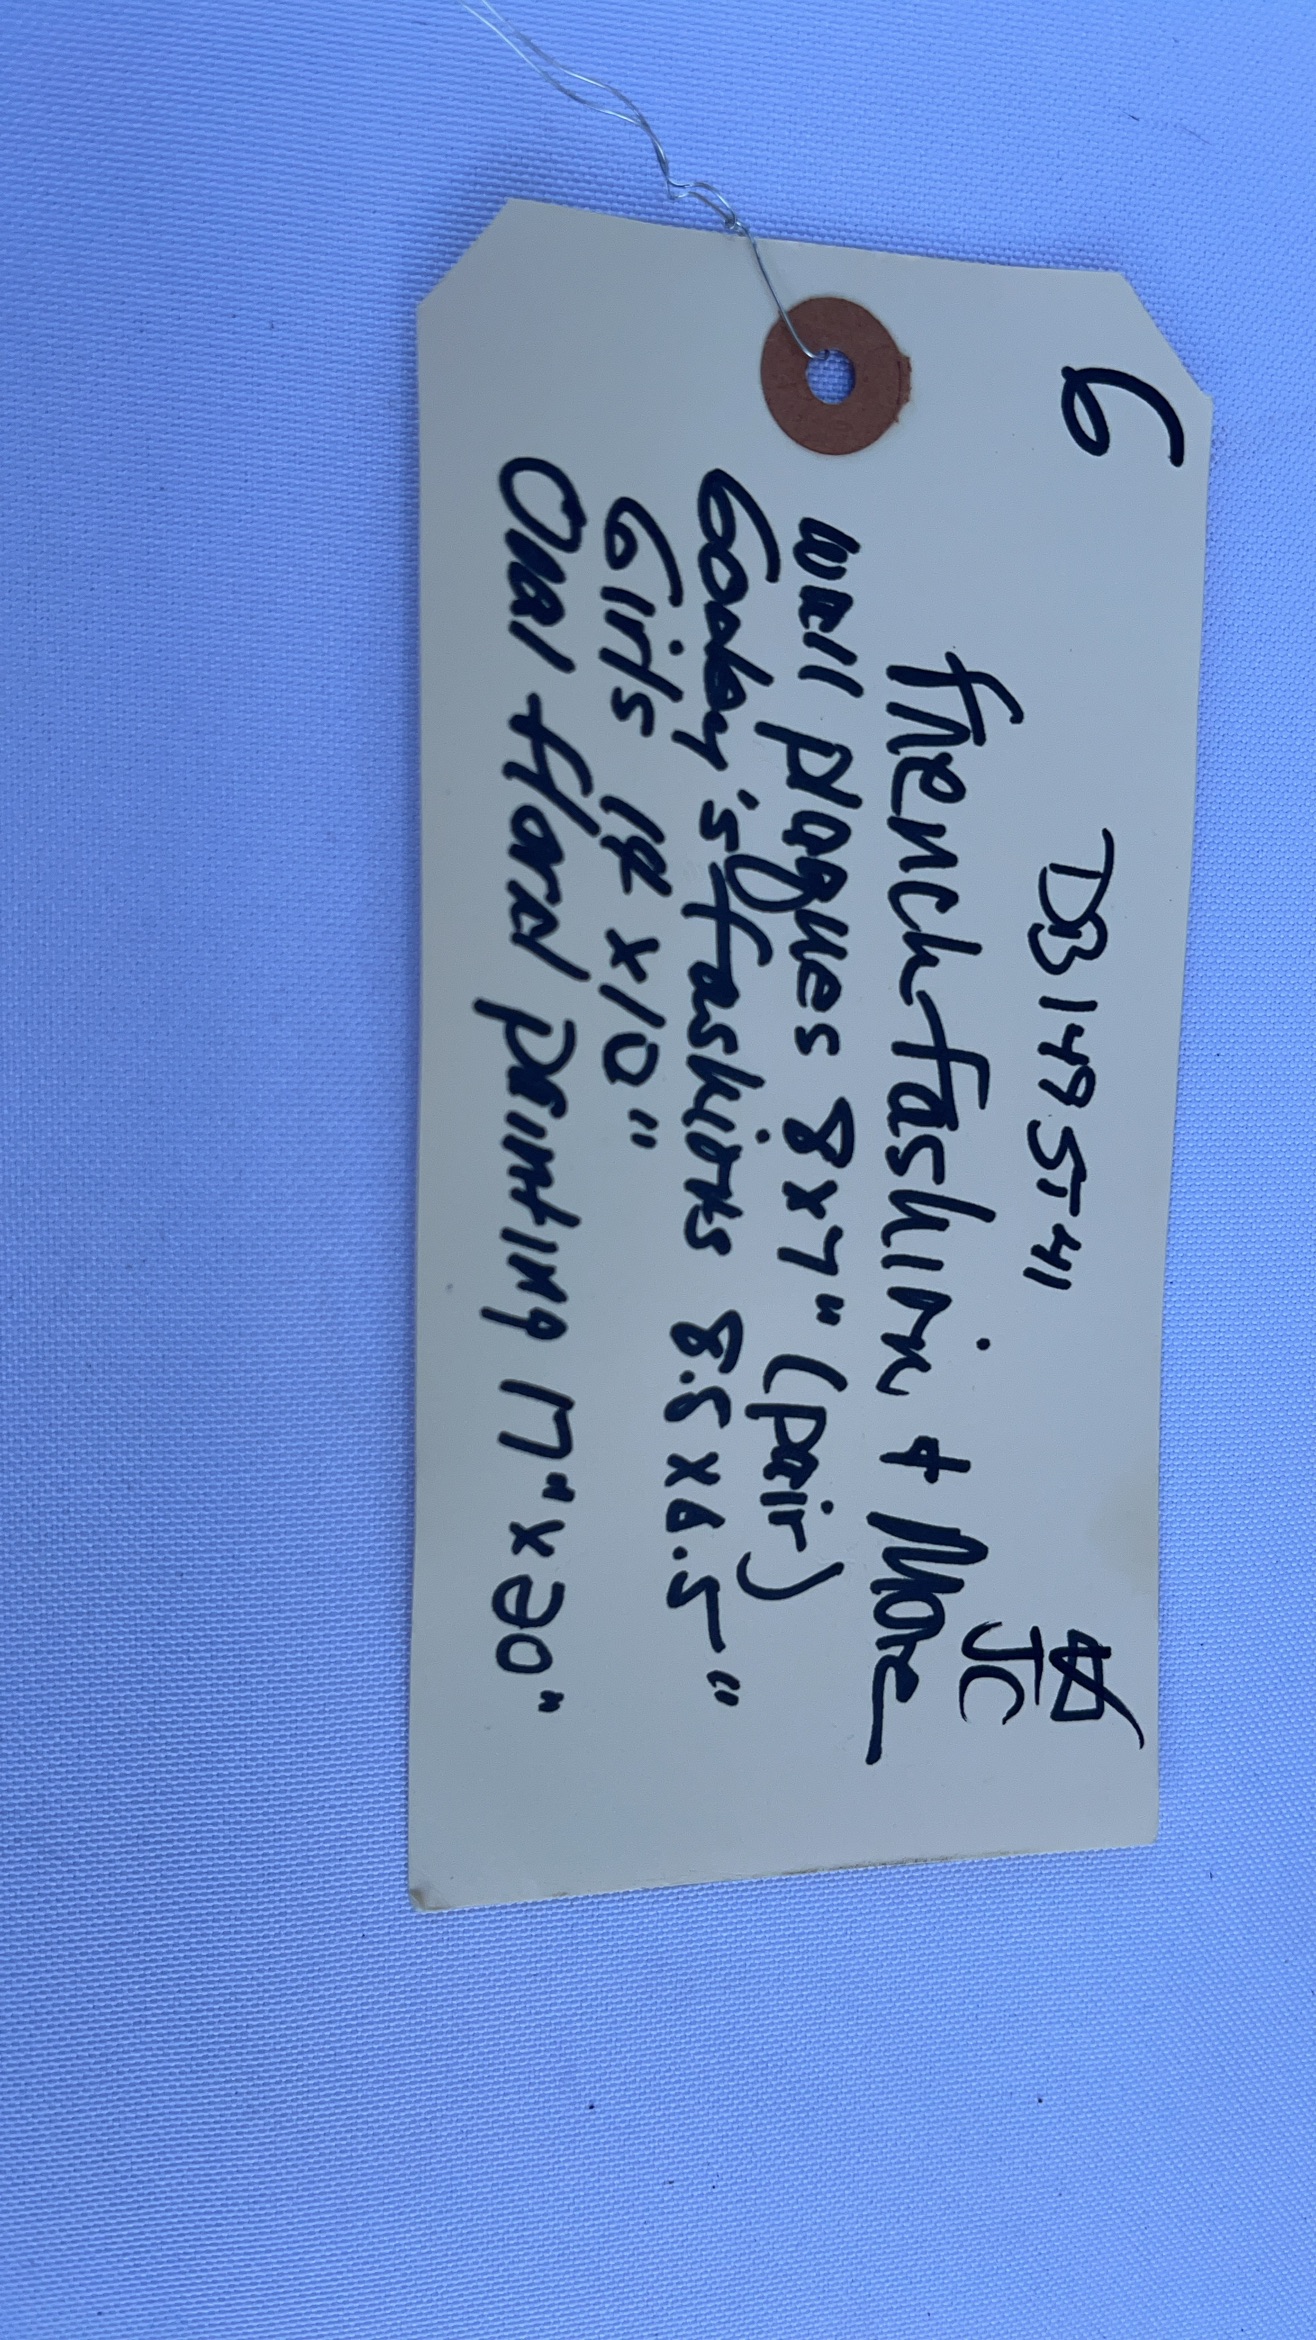 6 DB149ST41
JC
French Fashion + More
Wall Plaques 8x7" (pair)
Godey's Fashions 8.5 x 6.5"
Girls x10"
Oval Floral Painting 17" x 20"